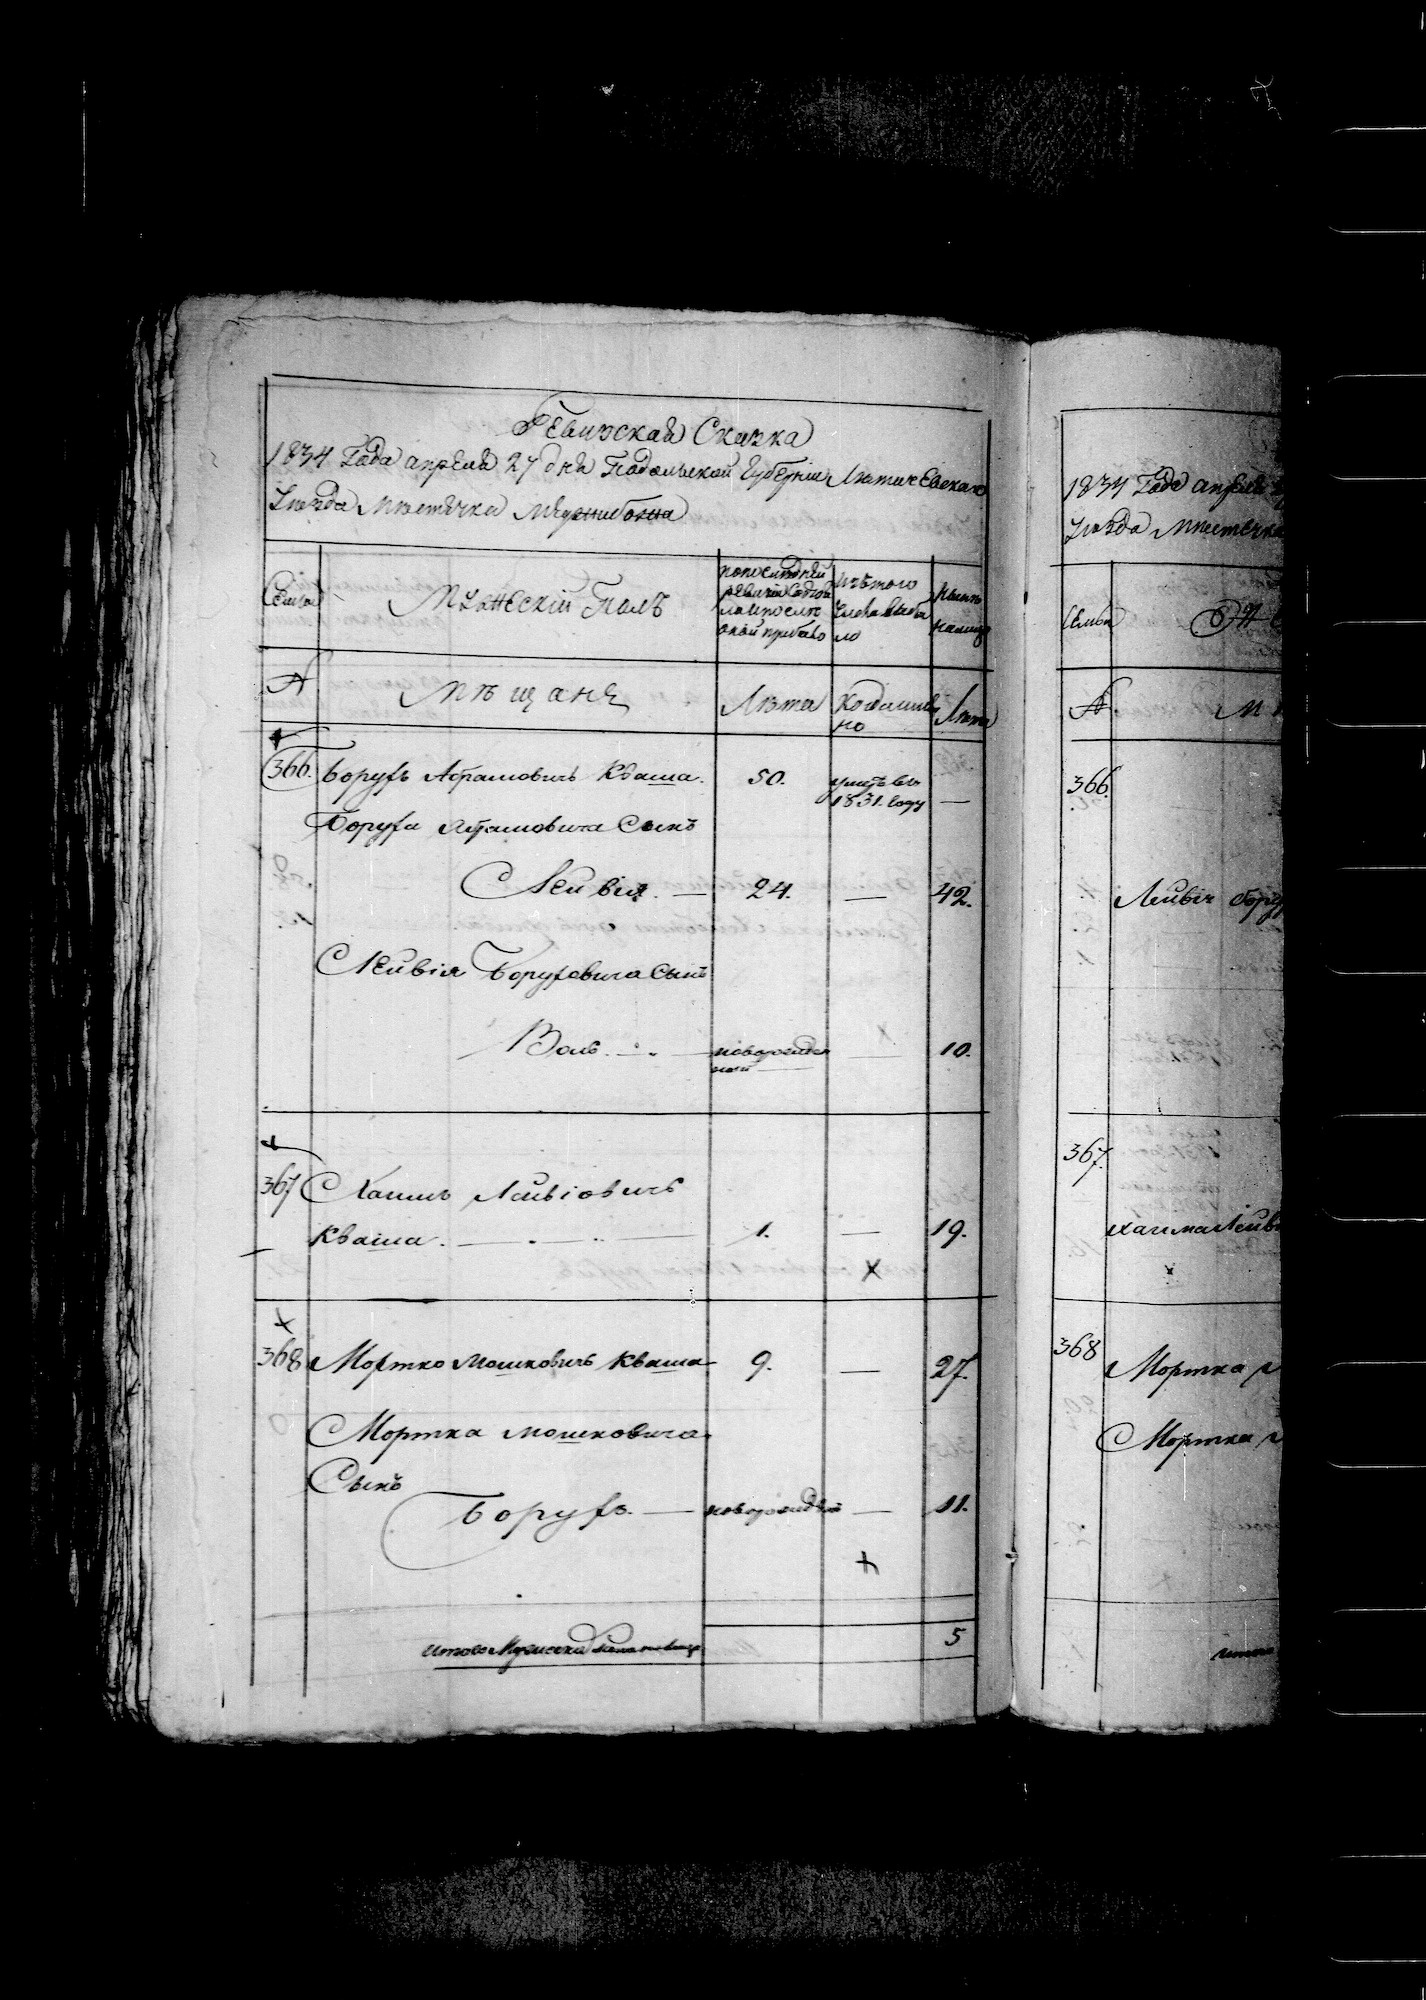 Ревизская Сказка
1834 Года апреля 27 дня Подольской Губернии Лютичевскаго
Уезда Местечка Меджибожа
Семьи
Мужескій Полъ
по последней
ревизіи состоя
ло и после
оной прибыло
Изъ того
числа выбы
ло
Ныне
налицо
№
Мѣщане
Лета
Когда имян
но
Лета
366. Борухъ Абрамовичь Кваша. 50. умеръ въ
1831. году —
Боруха Абрамовича Сынъ
Лейвія. — 24. — 42.
Лейвія Боруховича сынъ
Волъ. — новорожден
ной — 10.
367 Хаимъ Лейвіовичъ
Кваша. — 1. — 19.
368 Мортко Мошковичь Кваша 9. — 27.
Мортка Мошковича
Сынъ
Борухъ. — новорожден — 11.
итого Мужеска пола на лицо 5
1834 Года апреля
Уезда Местечка
Семьи
№
М
366.
Лейвіи Бору
367.
Хаима Лейв
368
Мортка
Мортка
итого